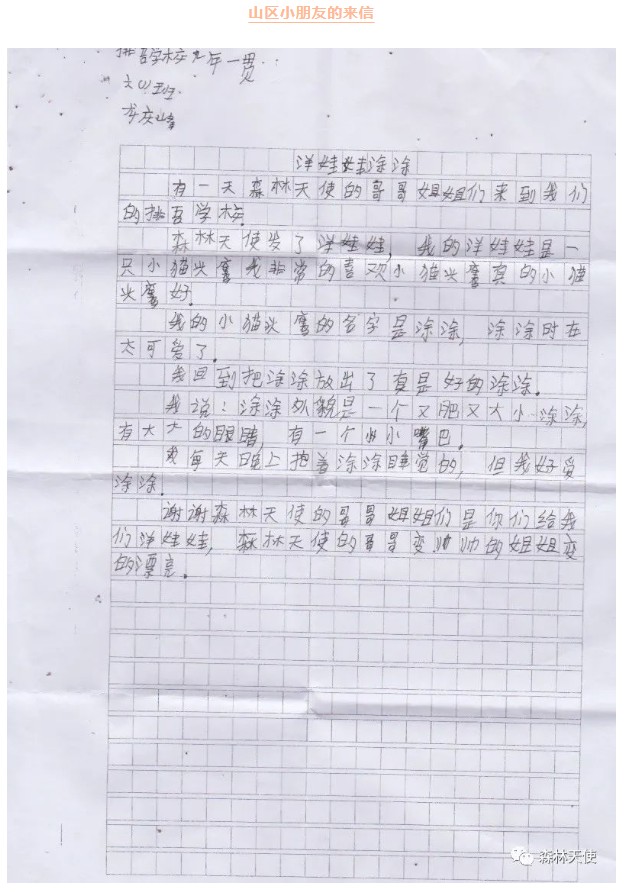 山区小朋友的来信
排吾学校九年一贯
六(1)班
洋娃娃涂涂
有一天森林天使的哥哥姐姐们来到我们
的排吾学校.
森林天使发了洋娃娃,我的洋娃娃是一
只小猫头鹰我非常的喜欢小猫头鹰真的小猫
头鹰好.
我的小猫头鹰的名字是涂涂,涂涂时在
太可爱了.
我回到把涂涂放出了真是好的涂涂.
我说:涂涂外貌是一个又肥又大小涂涂,
有大大的眼睛,有一个小小嘴巴.
我每天晚上抱着涂涂睡觉的,但我好爱
涂涂.
谢谢森林天使的哥哥姐姐们是你们给我
们洋娃娃,森林天使的哥哥变帅帅的姐姐变
的漂亮.
森林天使